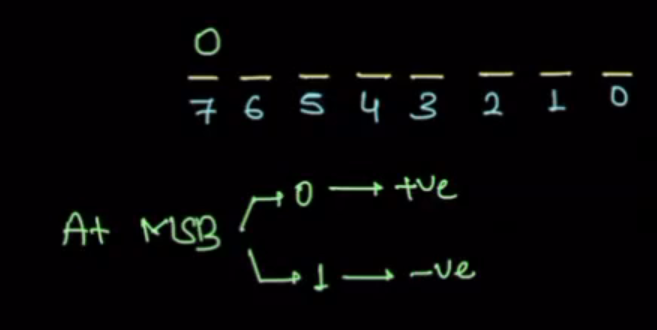 0
7 6 5 4 3 2 1 0
At MSB
0 → +ve
1 → -ve